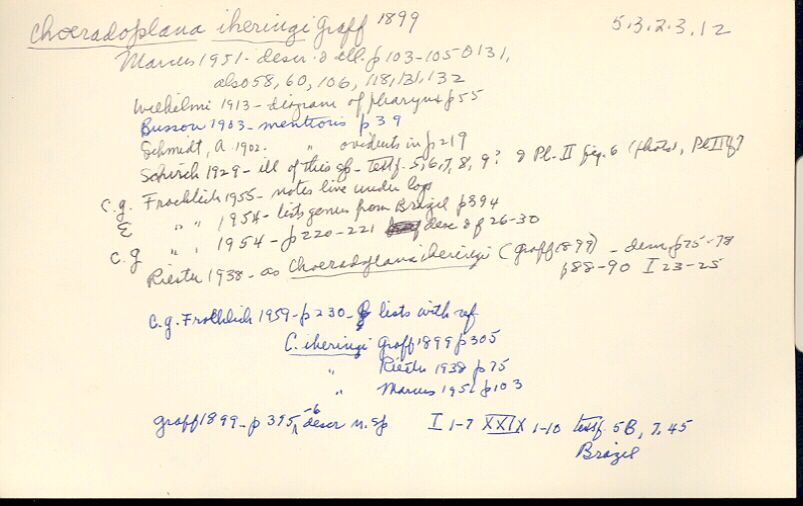 Choeradoplana iheringi Graff 1899 5.3.2.3.12
Marcus 1951 - descr. & ill. p 103-105 & 131,
also 58, 60, 106, 118, 131, 132
Wilhelmi 1913 - diagram of pharynx p 55
Busson 1903 - mentions p 39
Schmidt, A. 1902. " oviducts in p 219
Schirch 1929 - ill of this sp - textf. 5, 6, 7, 8, 9? & Pl. II fig. 6 (photo, Pl II f 7
C.g. Froehlich 1955 - notes live under logs
E " " 1954 - lists genus from Brazil p 394
C.g " " 1954 - p 220-221 desc & f 26-30
Riester 1938 - as Choeradoplana iheringi (Graff 1899) - dem p 75-78
p 88-90 I 23-25
C.g. Froehlich 1959 - p 230 - lists with ref
C. iheringi Graff 1899 p 305
" Riester 1938 p 75
" Marcus 1951 p 103
Graff 1899 - p 395-6 descr n. sp I 1-7 XXIX 1-10 textf. 5B, 7, 45
Brazil